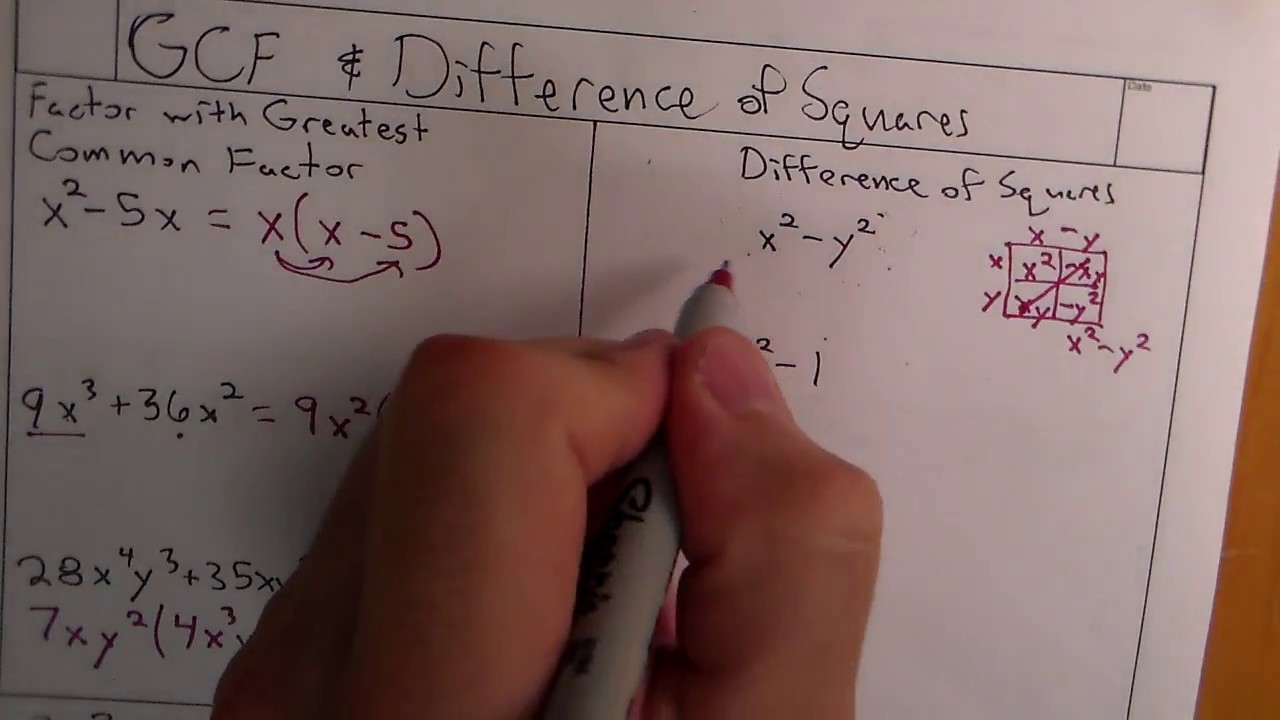 GCF & Difference of Squares
Date
Factor with Greatest
Common Factor
x² - 5x = x(x - 5)
9x³ + 36x² = 9x²(
28x⁴y³ + 35xy
7xy²(4x³y
Difference of Squares
x² - y²
² - 1
x - y
x x²
y xy -y²
x² - y²